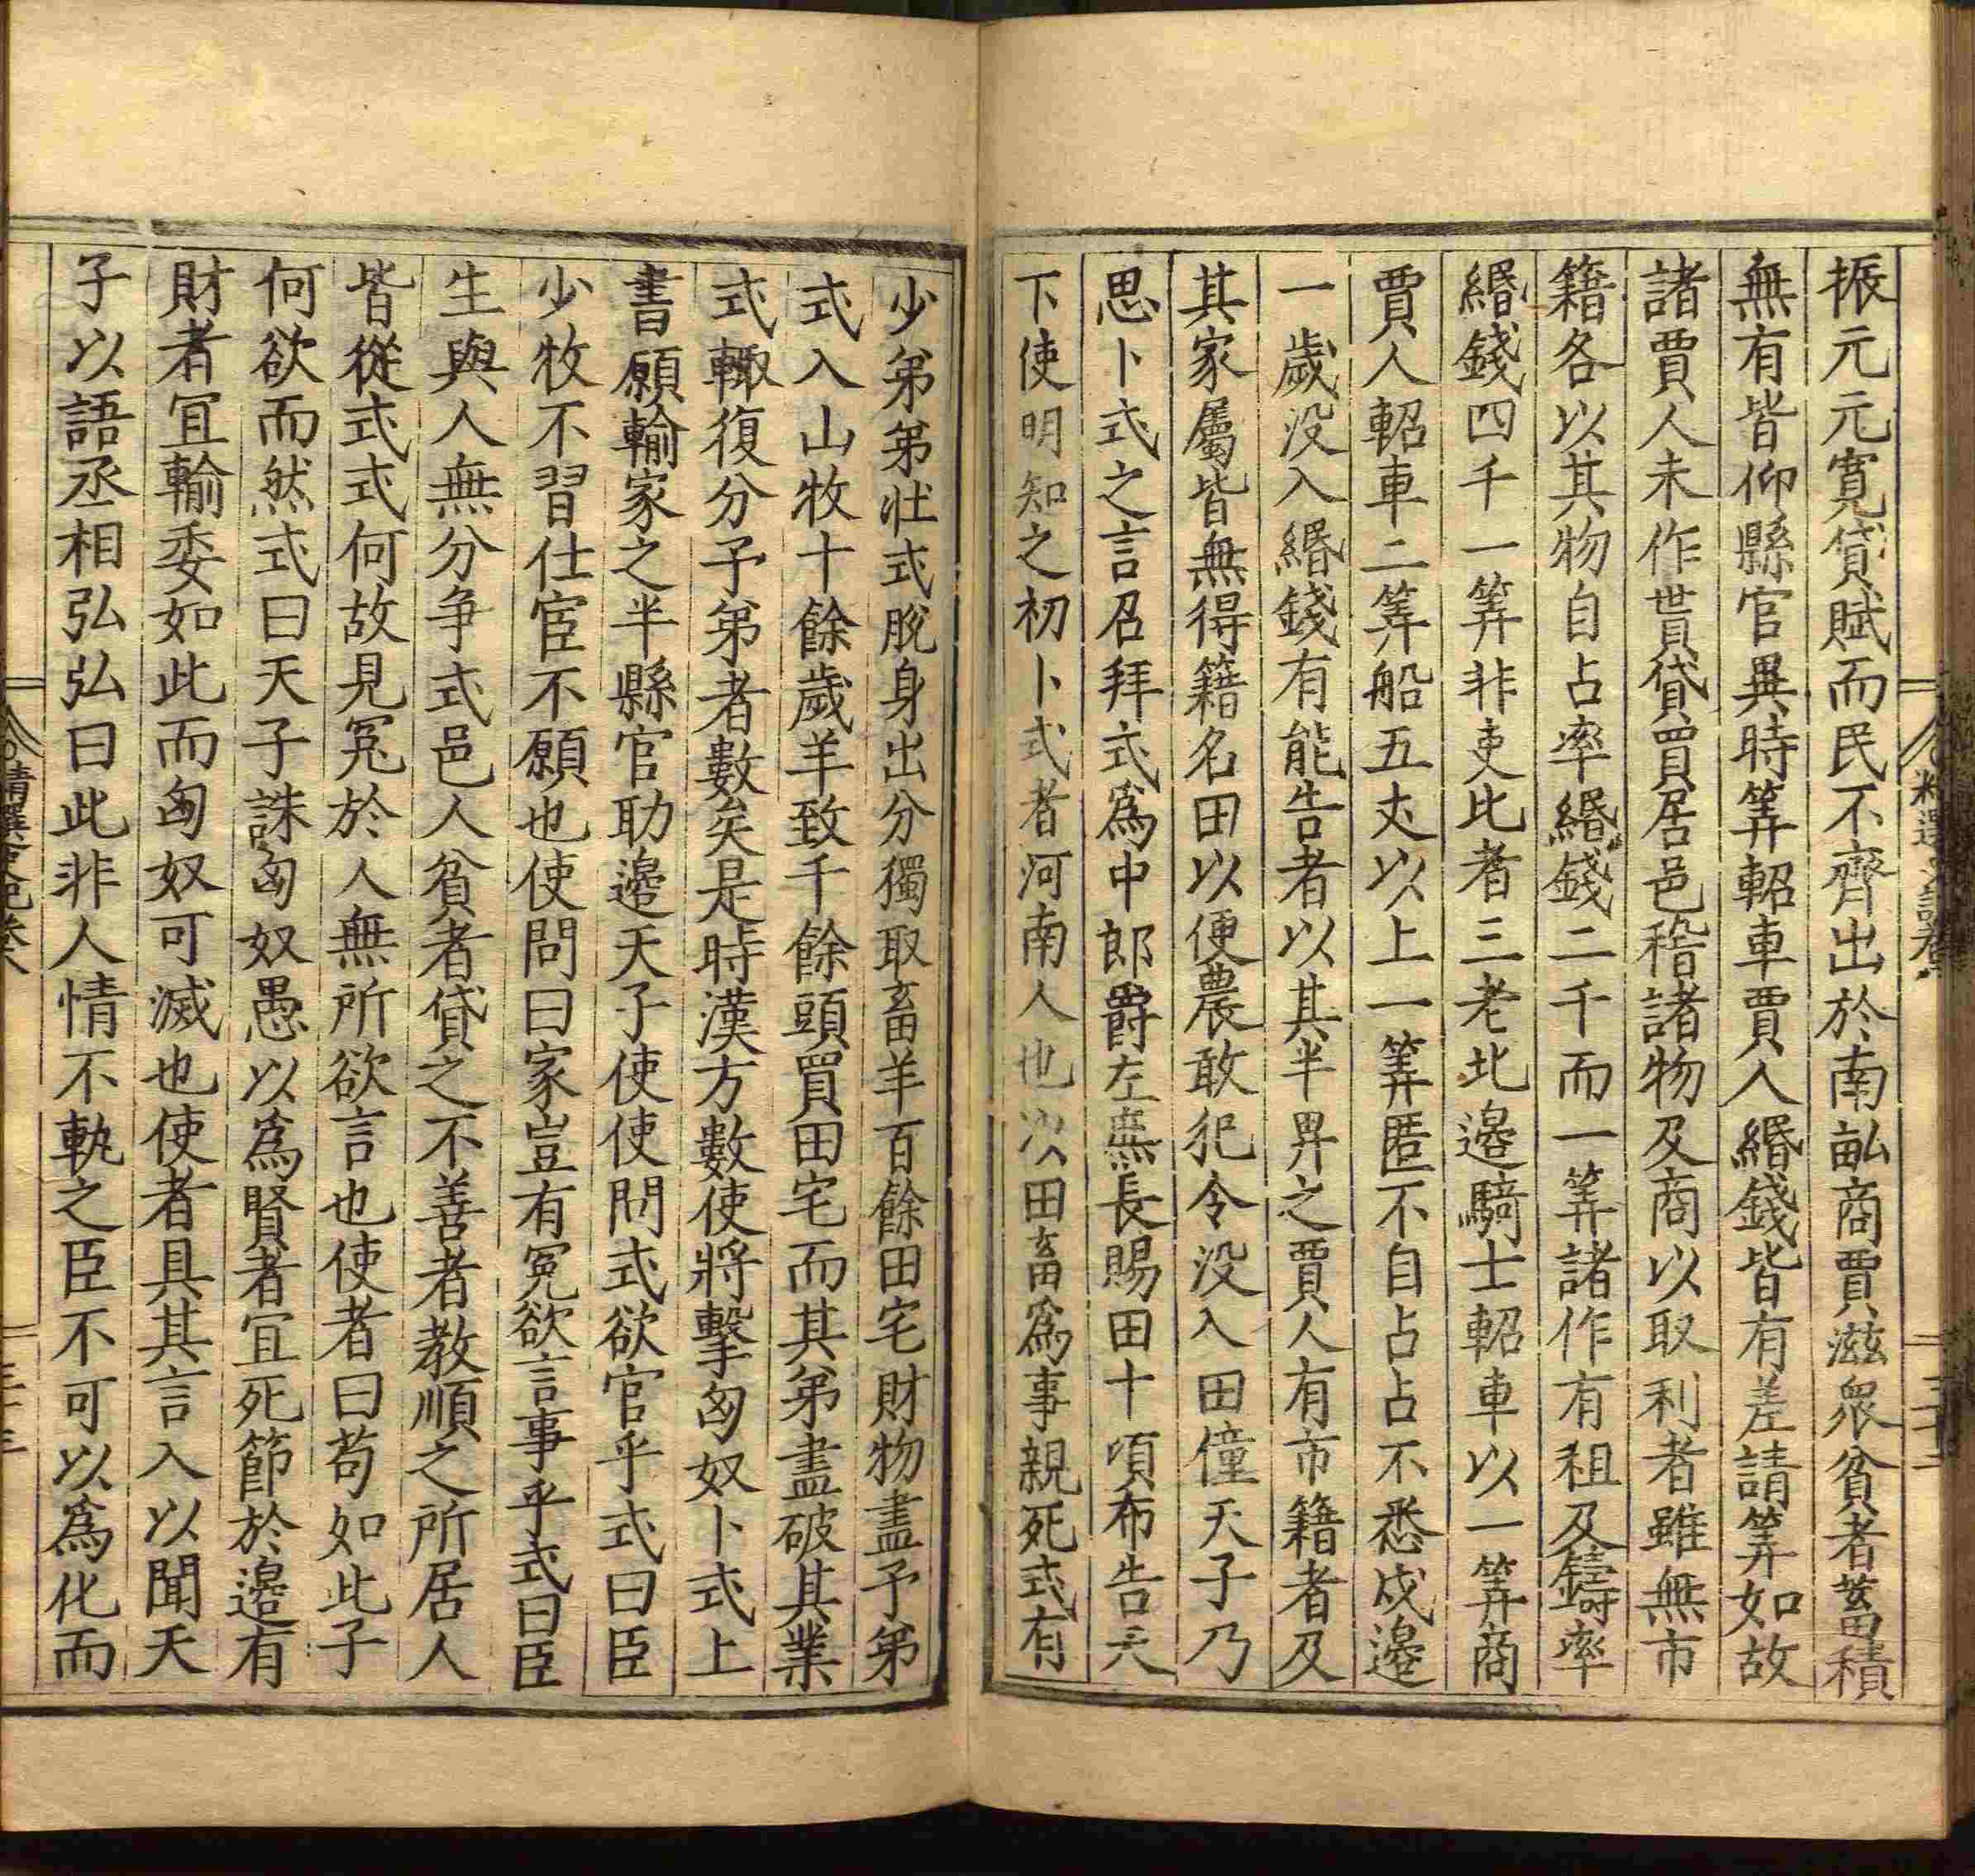 振元元寛貸賦而民不齊出於南畆商賈滋衆貧者畜積
無有皆仰縣官異時筭軺車賈人緡錢皆有差請筭如故
諸賈人未作貰貸買居邑稽諸物及商以取利者雖無市
籍各以其物自占率緡錢二千而一筭諸作有租及鑄率
緡錢四千一筭非吏比者三老北邊騎士軺車以一筭商
賈人軺車二筭船五丈以上一筭匿不自占占不悉戍邊
一歲没入緡錢有能告者以其半畀之賈人有市籍者及
其家屬皆無得籍名田以便農敢犯令没入田僮天子乃
思卜式之言召拜式爲中郎爵左庶長賜田十頃布告天
下使明知之初卜式者河南人也以田畜爲事親死式有
少弟弟壯式脫身出分獨取畜羊百餘田宅財物盡予弟
式入山牧十餘歲羊致千餘頭買田宅而其弟盡破其業
式輙復分予弟者數矣是時漢方數使將擊匈奴卜式上
書願輸家之半縣官助邊天子使使問式欲官乎式曰臣
少牧不習仕宦不願也使問曰家豈有冤欲言事乎式曰臣
生與人無分争式邑人貧者貸之不善者教順之所居人
皆從式式何故見冤於人無所欲言也使者曰苟如此子
何欲而然式曰天子誅匈奴愚以爲賢者宜死節於邊有
財者宜輸委如此而匈奴可滅也使者具其言入以聞天
子以語丞相弘弘曰此非人情不軌之臣不可以爲化而
精選史記卷